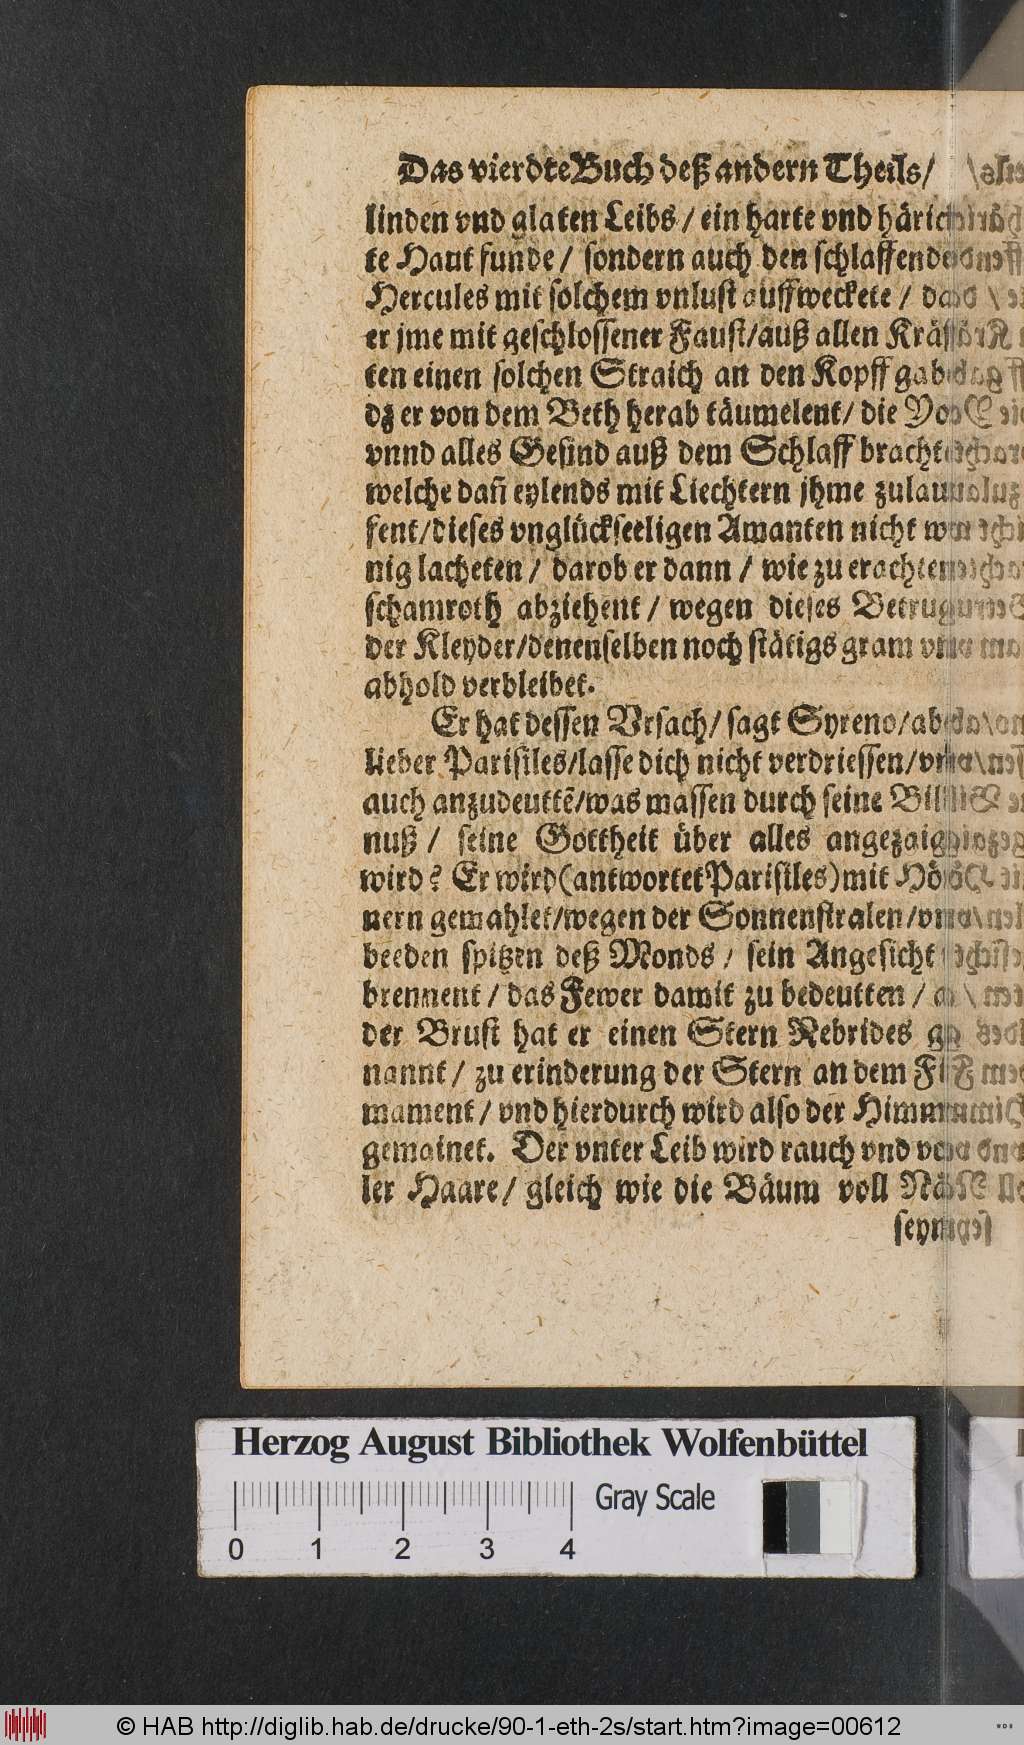 Das vierdte Buch deß andern Theils/
linden vnd glaten Leibs / ein harte vnd härich
te Haut funde / sondern auch den schlaffenden
Hercules mit solchem vnlust auffweckete / das
er jme mit geschlossener Faust/auß allen Kräff
ten einen solchen Straich an den Kopff gab
dz er von dem Beth herab täumelent/ die
vnnd alles Gesind auß dem Schlaff bracht
welche dañ eylends mit Liechtern jhme zulauf
fent/dieses vnglückseeligen Amanten nicht we
nig lacheten / darob er dann / wie zu erachten
schamroth abziehent / wegen dieses Betrug
der Kleyder/denenselben noch stätigs gram vnd
abhold verbleibet.
Er hat dessen Vrsach/ sagt Syreno/ab
lieber Parisiles/lasse dich nicht verdriessen/vns
auch anzudeuttē/was massen durch seine Bild
nuß / seine Gottheit über alles angezaigt
wird? Er wird(antwortet Parisiles)mit Hör
nern gemahlet/wegen der Sonnenstralen/vnd
beeden spitzen deß Monds / sein Angesicht
brennent / das Fewer damit zu bedeutten / an
der Brust hat er einen Stern Nebrides ge
nannt / zu erinderung der Stern an dem Fir
mament / vnd hierdurch wird also der Himmel
gemainet. Der vnter Leib wird rauch vnd vol
ler Haare/ gleich wie die Bäum voll
seynd
Herzog August Bibliothek Wolfenbüttel
0 1 2 3 4 Gray Scale
© HAB http://diglib.hab.de/drucke/90-1-eth-2s/start.htm?image=00612